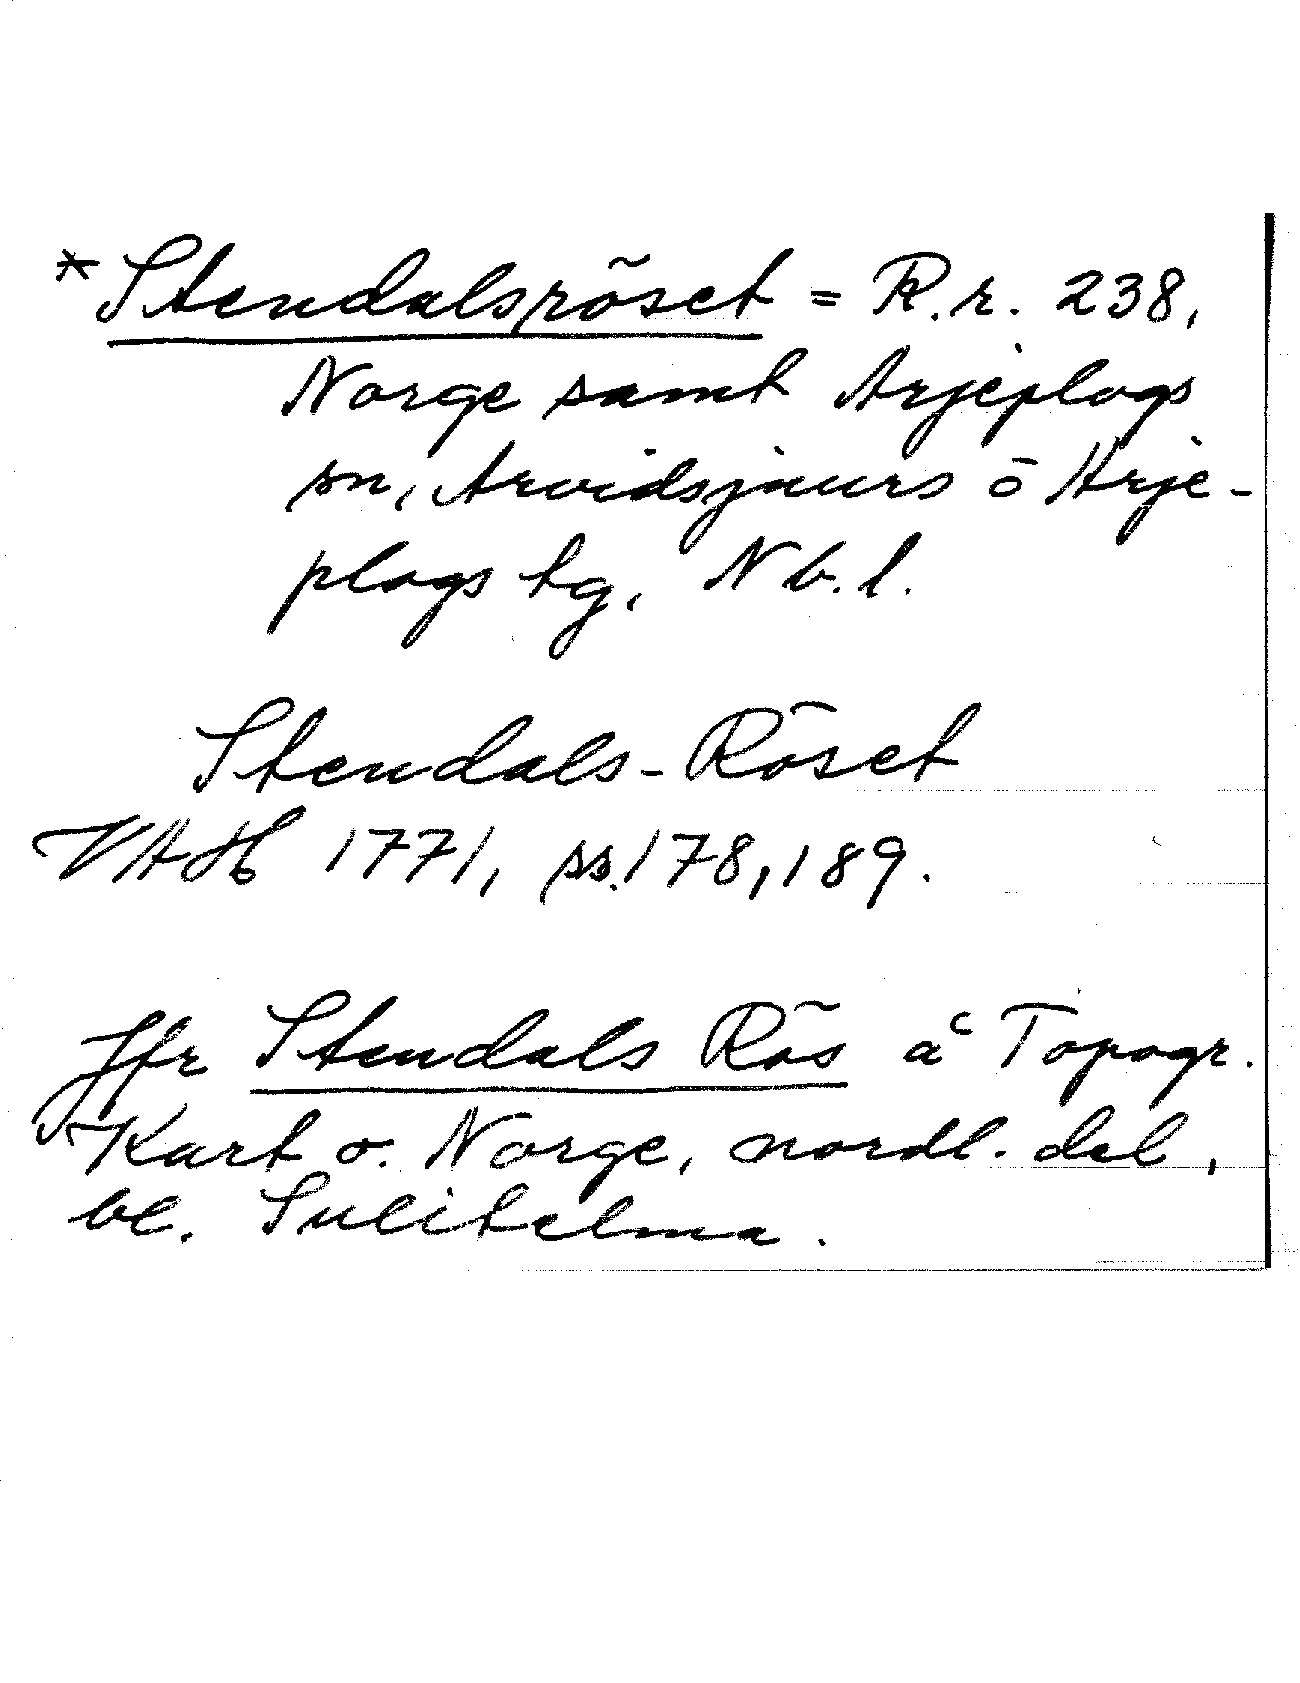 *Stendalsröset = R.r. 238,
Norge samt Arjeplogs
sn, Arvidsjaurs o Arje-
plogs tg, Nb.l.
Stendals-Röset
VAH 1771, ss. 178, 189.
Jfr Stendals Rös å Topogr.
Kart o. Norge, nordl. del,
bl. Sulitelma.